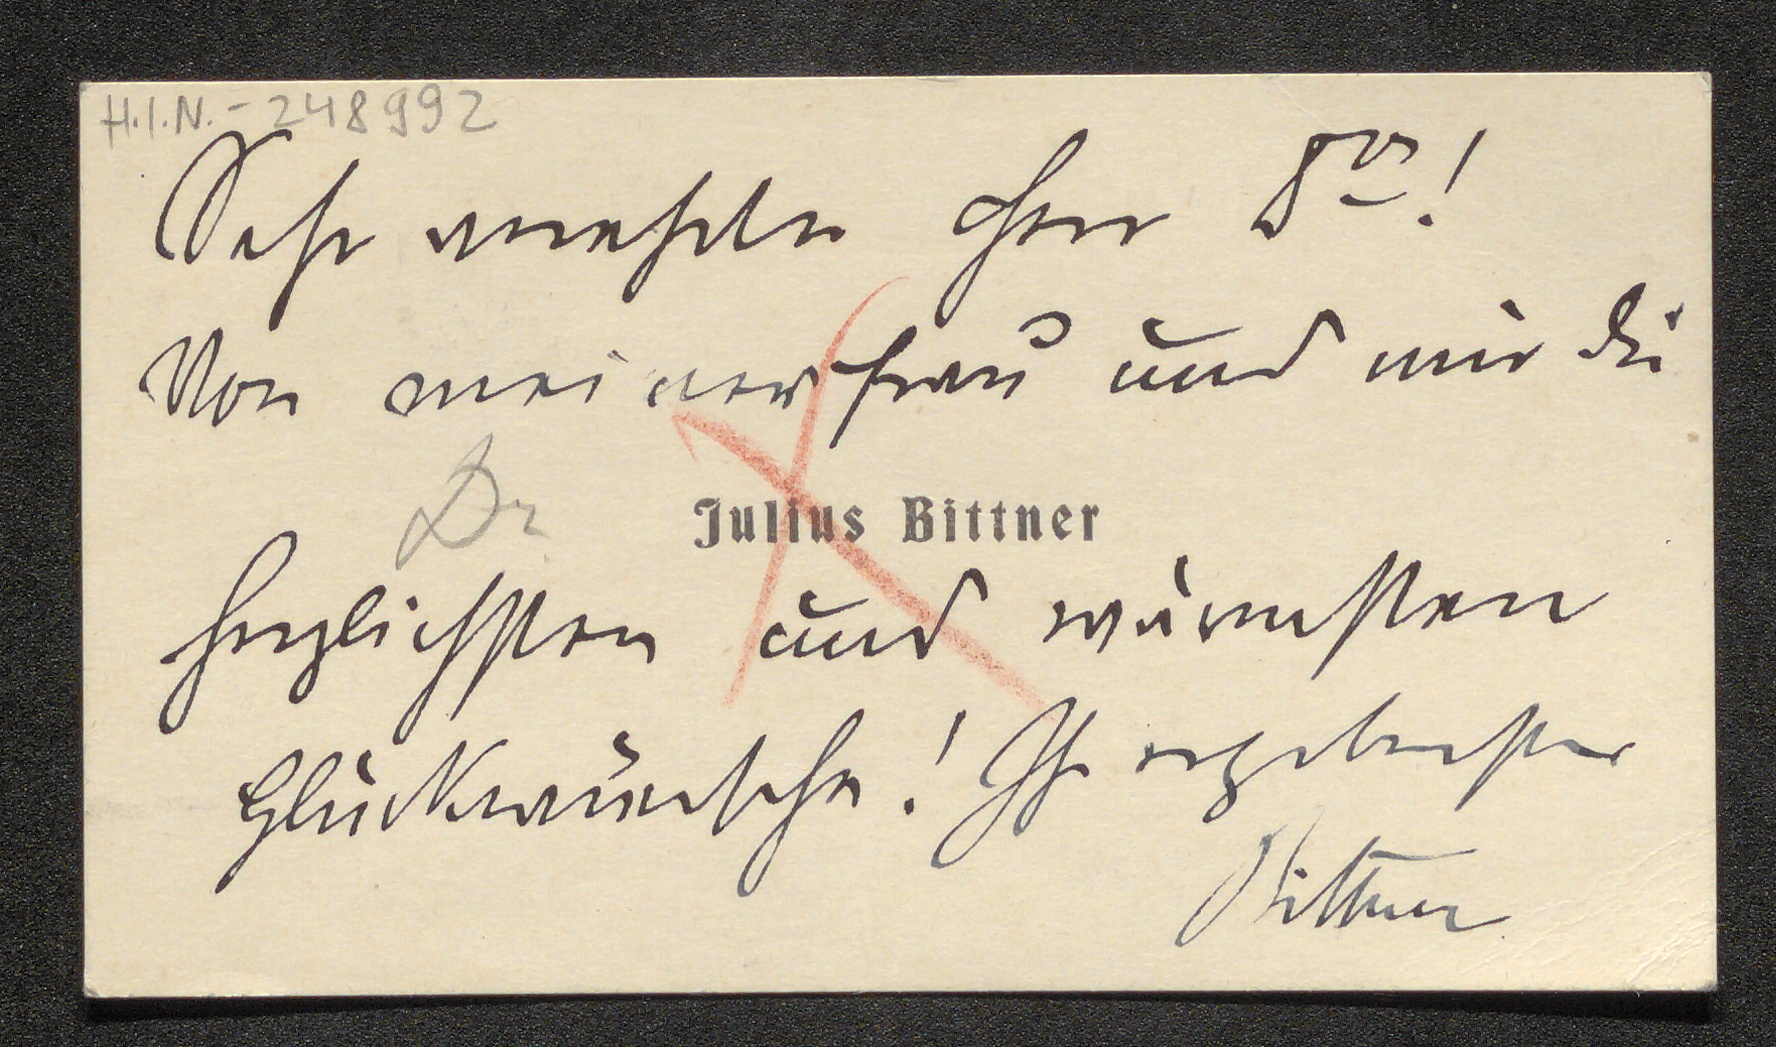 H.I.N.-248992
Sehr verehrter Herr Dr!
Von meiner Frau und mir die
Dr
Julius Bittner
herzlichsten und wärmsten
Glückwünsche! Ihr ergebenster
Bittner